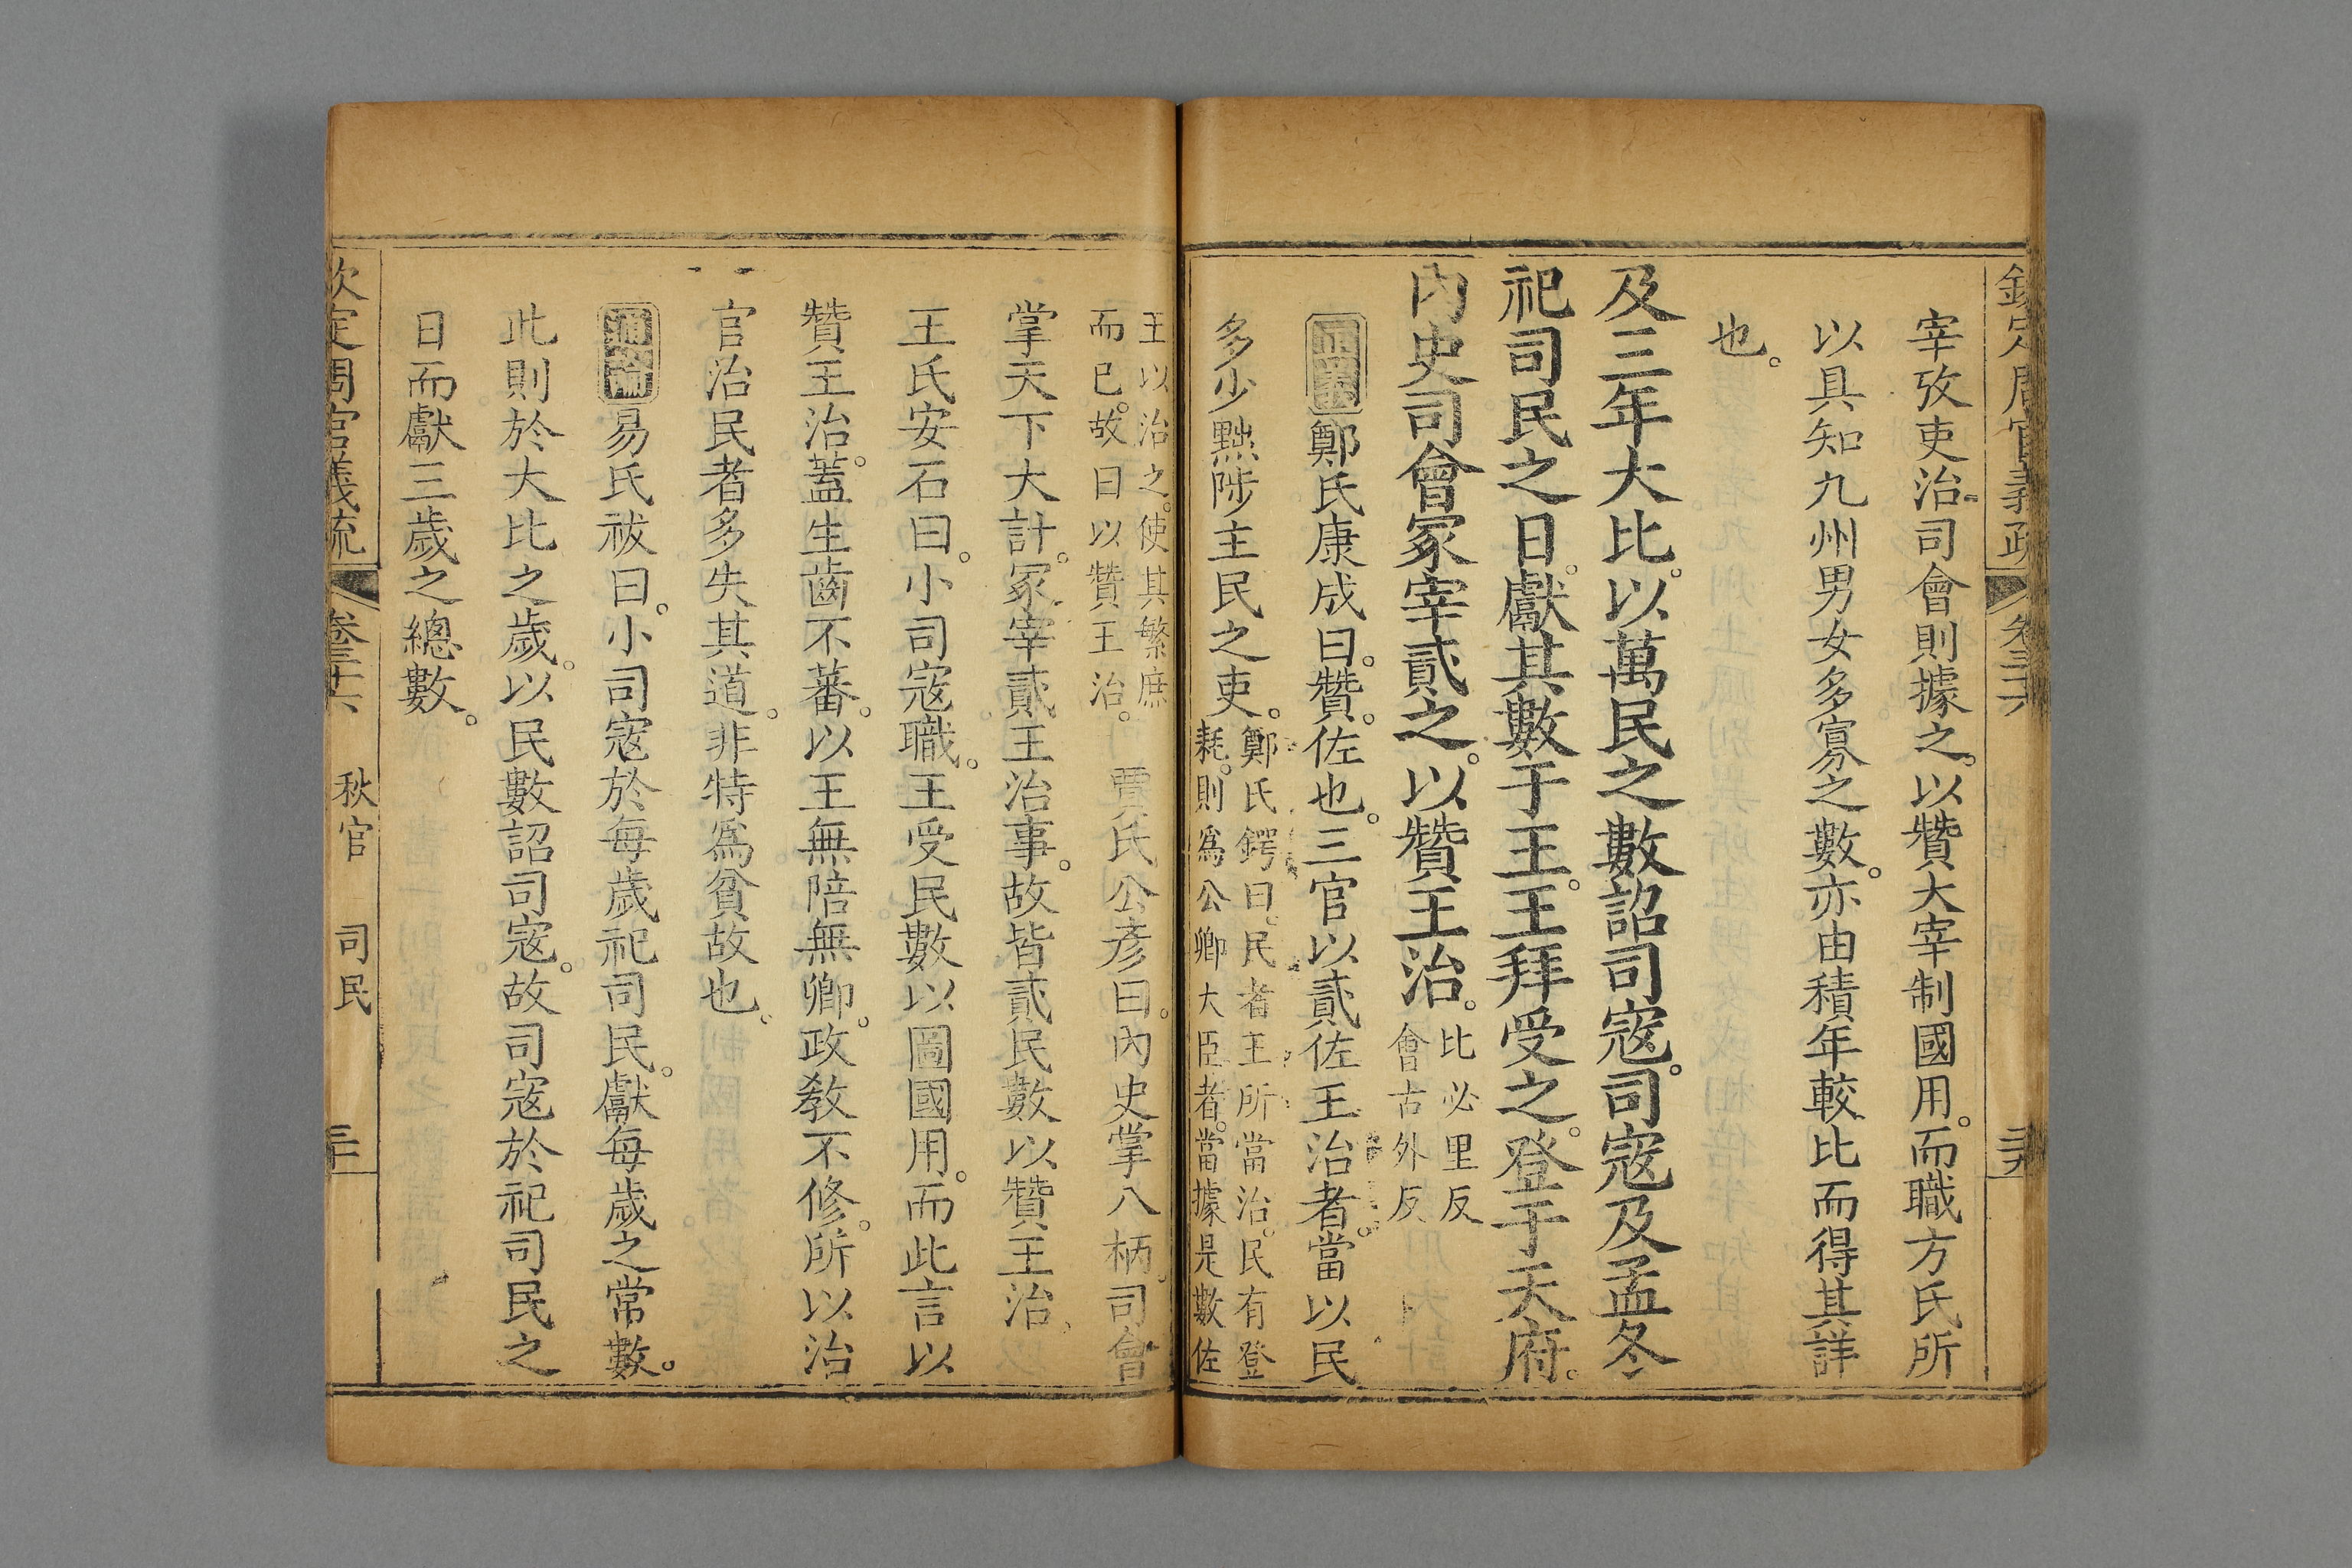 欽定周官義疏 卷三十六
宰攷吏治。司會則據之。以贊大宰制國用。而職方氏所
以具知九州男女多寡之數。亦由積年較比而得其詳
也。
及三年大比。以萬民之數詔司寇。司寇及孟冬
祀司民之日。獻其數于王。王拜受之。登于天府。
內史司會冢宰貳之。以贊王治。比必里反
會古外反
正義鄭氏康成曰。贊。佐也。三官以貳佐王治者。當以民
多少黜陟主民之吏。鄭氏鍔曰。民者王所當治。民有登
耗。則為公卿大臣者。當據是數佐
王以治之。使其繁庶
而已。故曰以贊王治。 賈氏公彥曰。內史掌八柄。司會
掌天下大計。冢宰貳王治事。故皆貳民數以贊王治
王氏安石曰。小司寇職。王受民數以圖國用。而此言以
贊王治。蓋生齒不蕃。以王無陪無卿。政教不修。所以治
官治民者多失其道。非特為貧故也。
通論易氏祓曰。小司寇於每歲祀司民。獻每歲之常數。
此則於大比之歲。以民數詔司寇。故司寇於祀司民之
日而獻三歲之總數。
欽定周官義疏 卷三十六 秋官 司民 三十